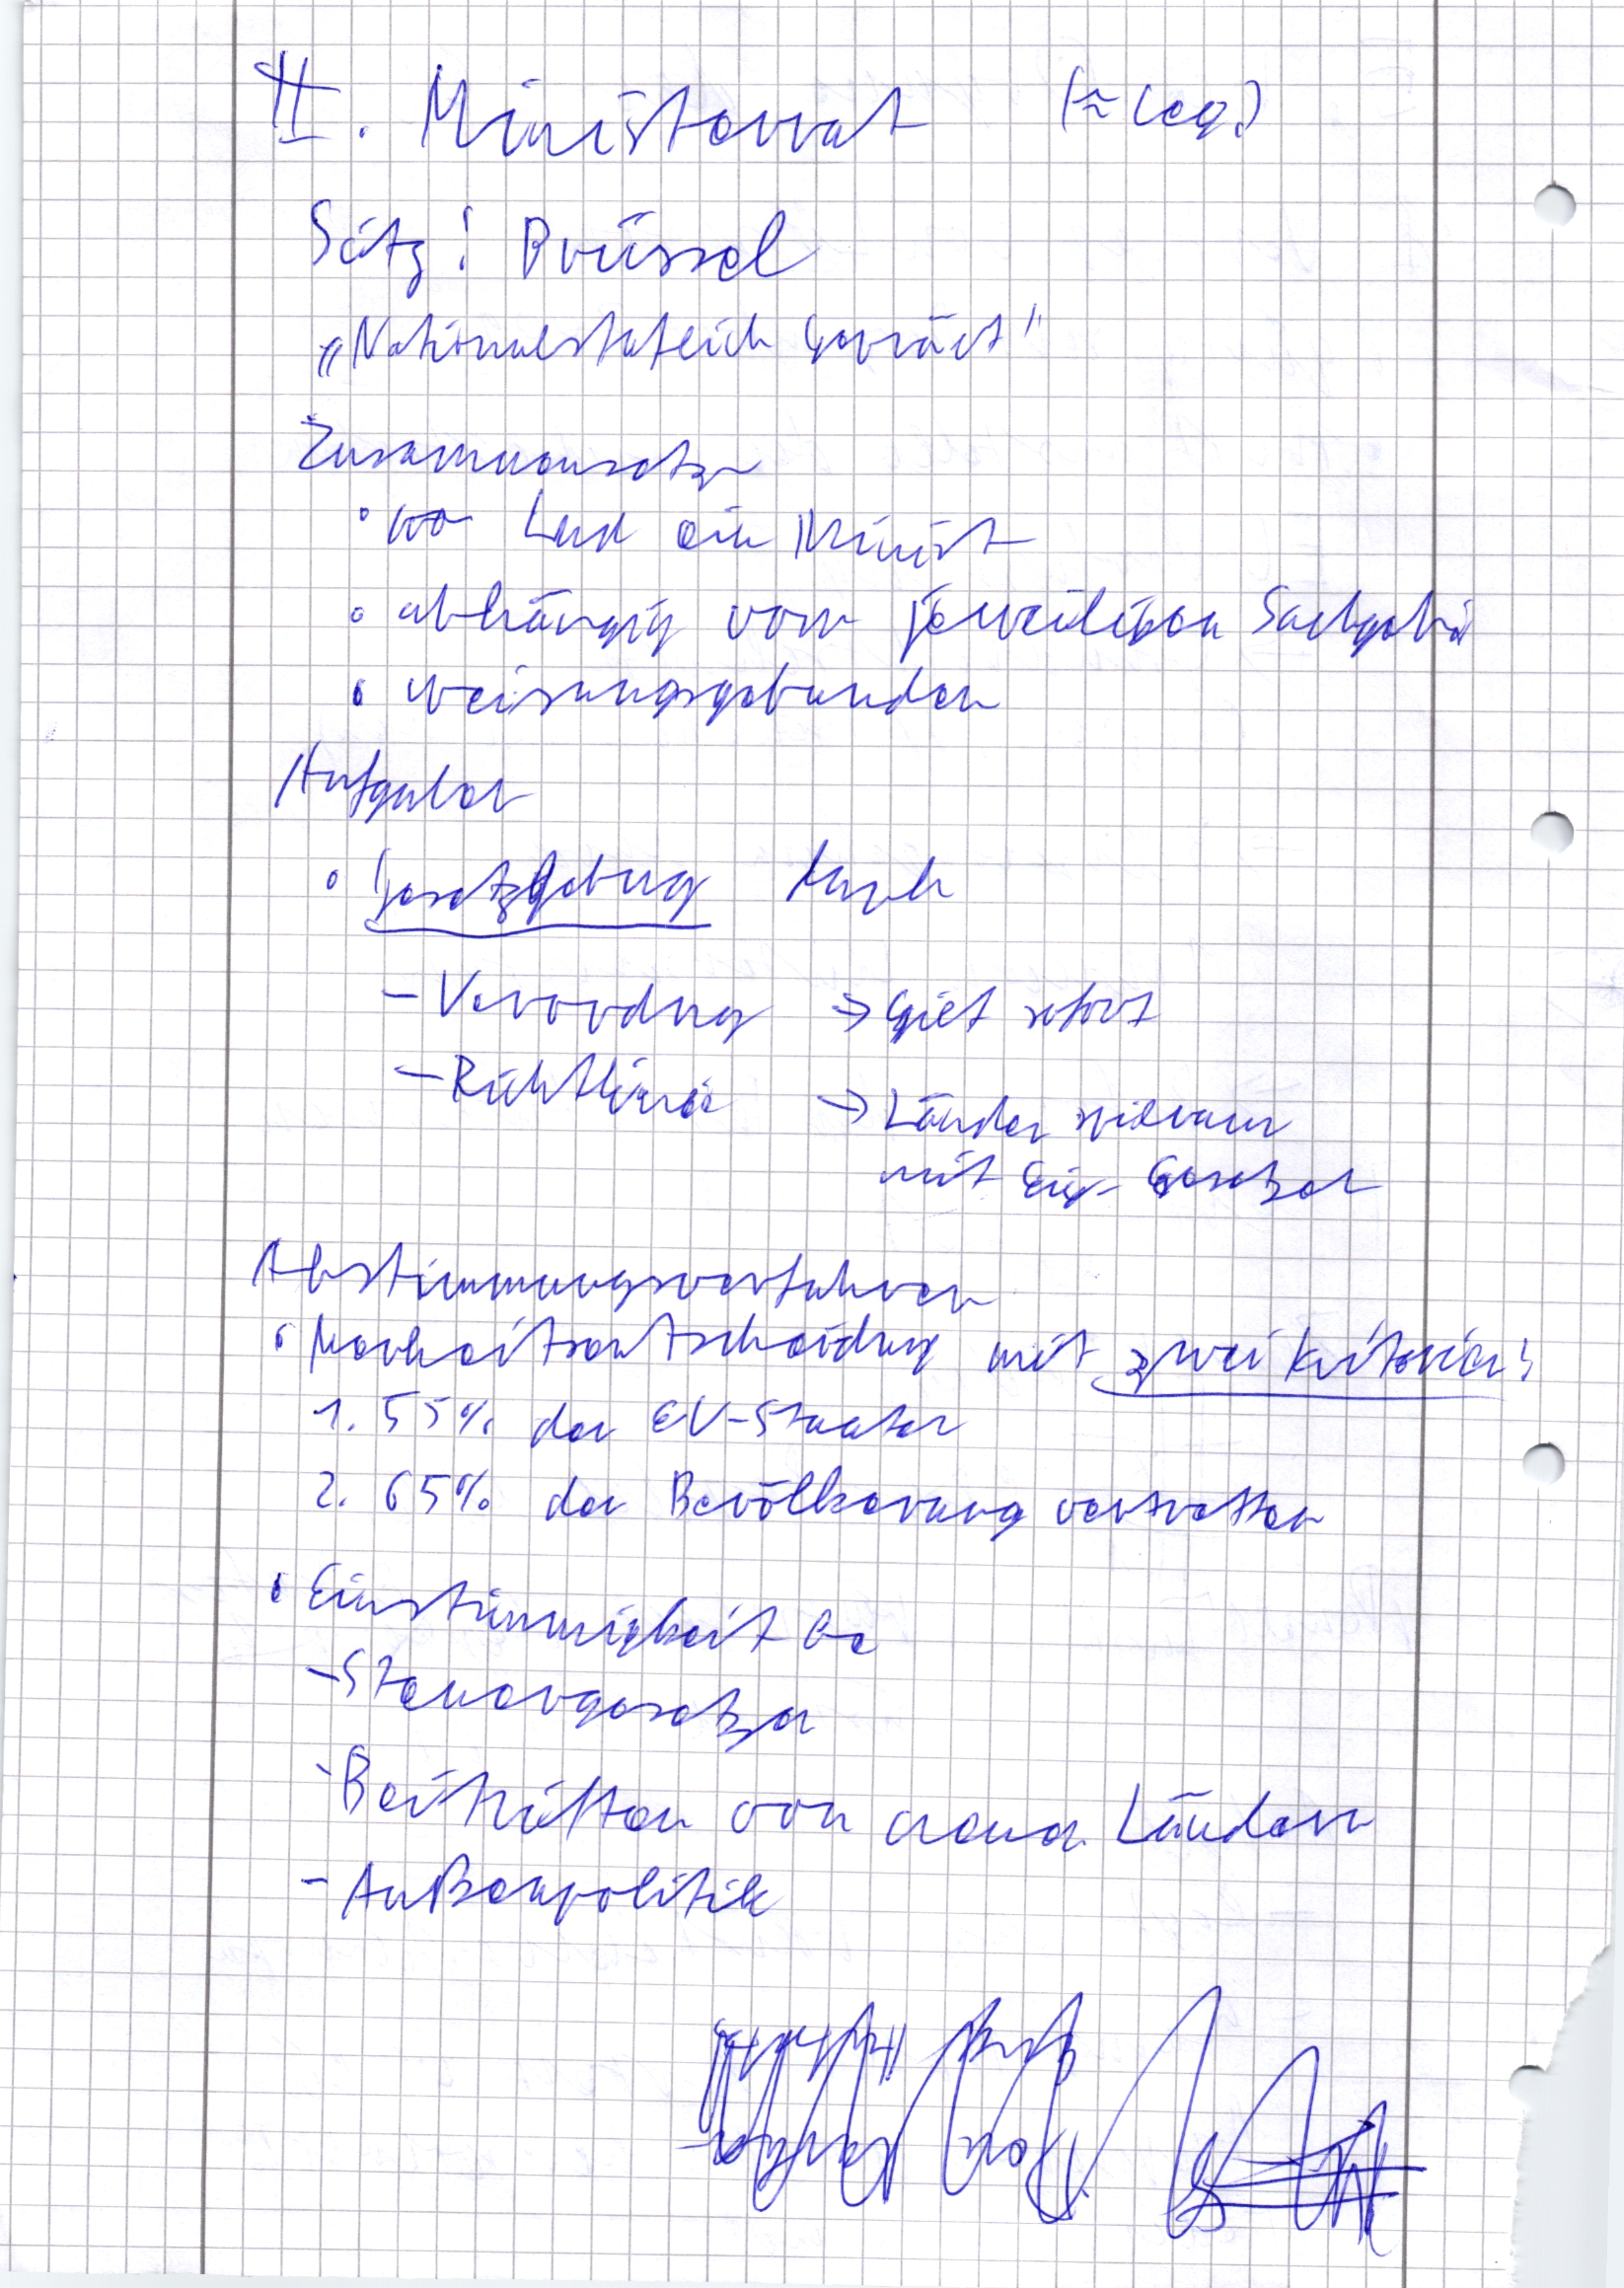 II. Ministerrat (≈ Leg.)
Sitz: Brüssel
„Nationalstatlich geprägt"
Zusammensetzn
• pro Land ein Minist
• abhängig vom jeweiligen Sachgebi
• weisungsgebunden
Aufgaben
• Gesetzgebung durch
- Verordnug → gilt sofort
- Richtlinie → Länder
mit Eig. Gesetzen
Abstimmungsverfahren
• Merheitsentscheidung mit zwei Kriterien:
1. 55% der EU-Staaten
2. 65% der Bevölkerung vertretten
• Einstimmigkeit be
- Steuergesetzen
- Beitritten von neuen Ländern
- Außenpolitik